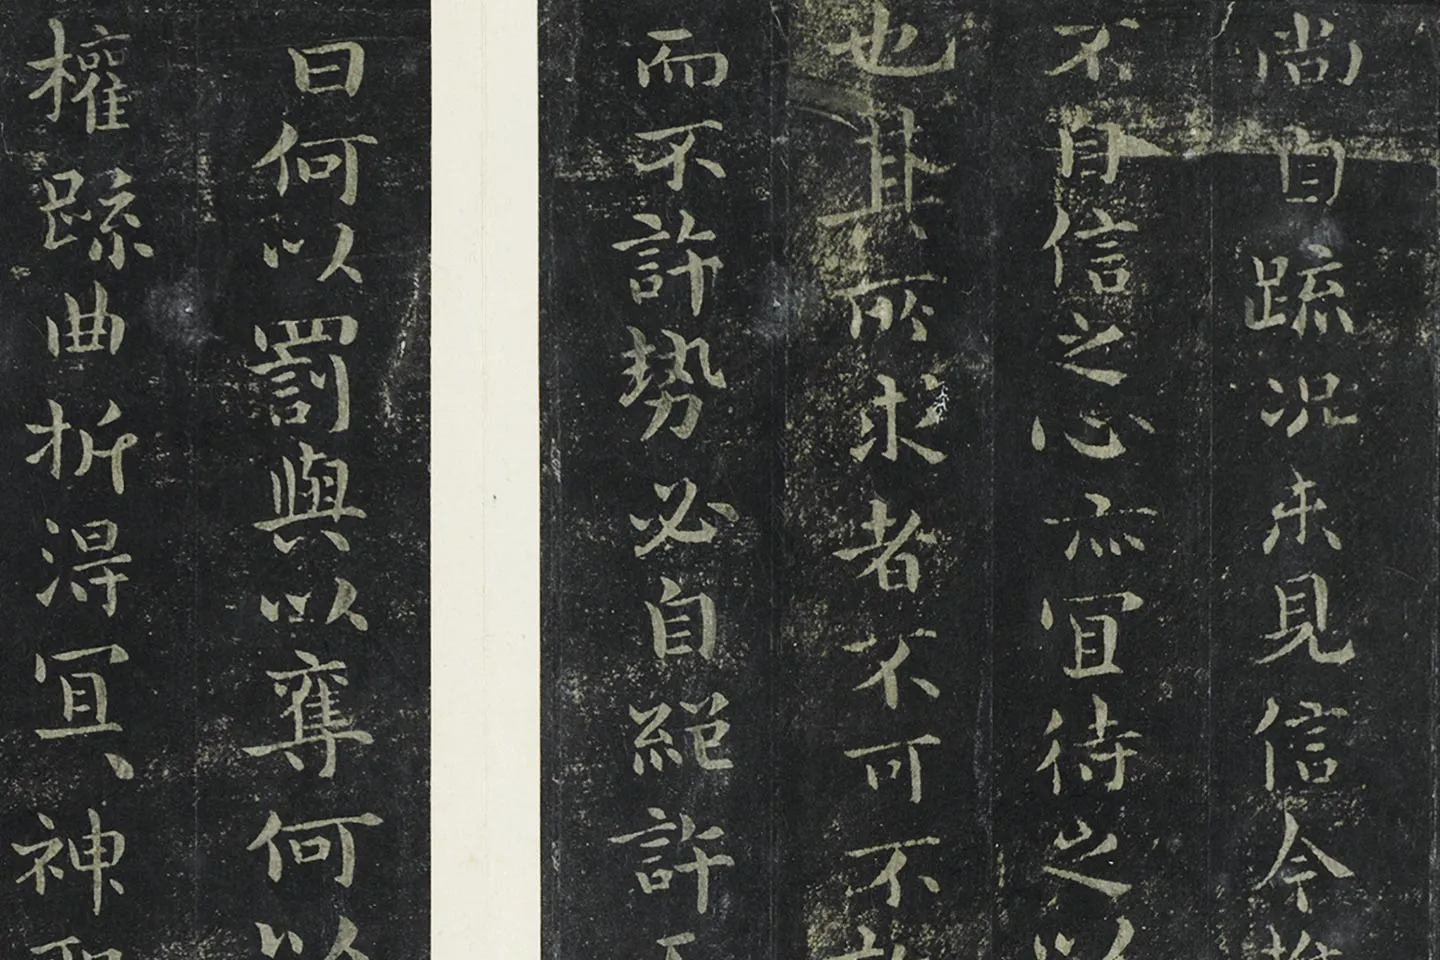 尚自疏況未見信今
不自信之心亦宜待之以
也其所求者不可不
而不許勢必自絕許
曰何以罰與以奪何以
權踈曲折得宜、神